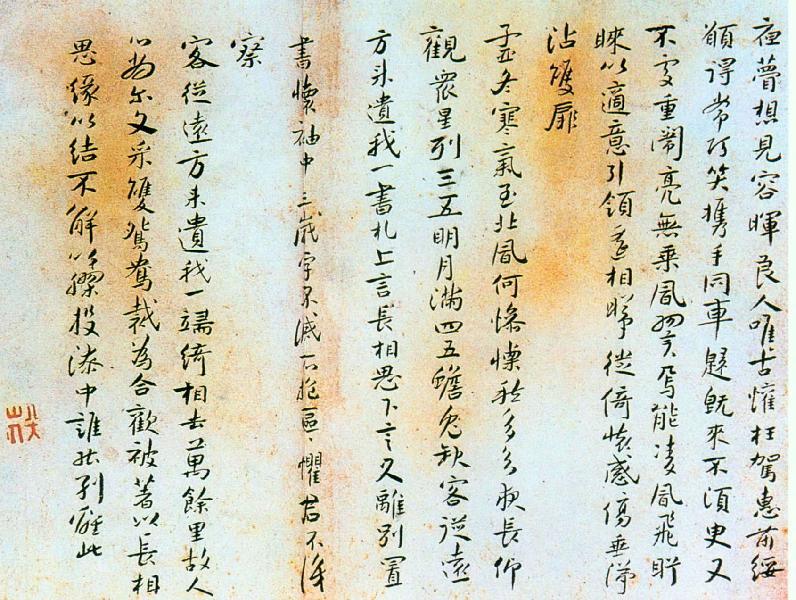 夜夢想見容暉良人唯古懽枉駕惠前綏
願得常巧笑攜手同車歸既來不須臾又
不處重闈亮無晨風翼焉能凌風飛眄
睞以適意引領遙相睎徙倚懷感傷垂涕
沾雙扉
孟冬寒氣至北風何慘慄愁多知夜長仰
觀衆星列三五明月滿四五蟾兔缺客從遠
方來遺我一書札上言長相思下言久離別置
書懷袖中三歲字不滅一心抱區〻懼君不識
察
客從遠方來遺我一端綺相去萬餘里故人
心尚爾文采雙鴛鴦裁為合歡被著以長相
思緣以結不解以膠投漆中誰能別離此